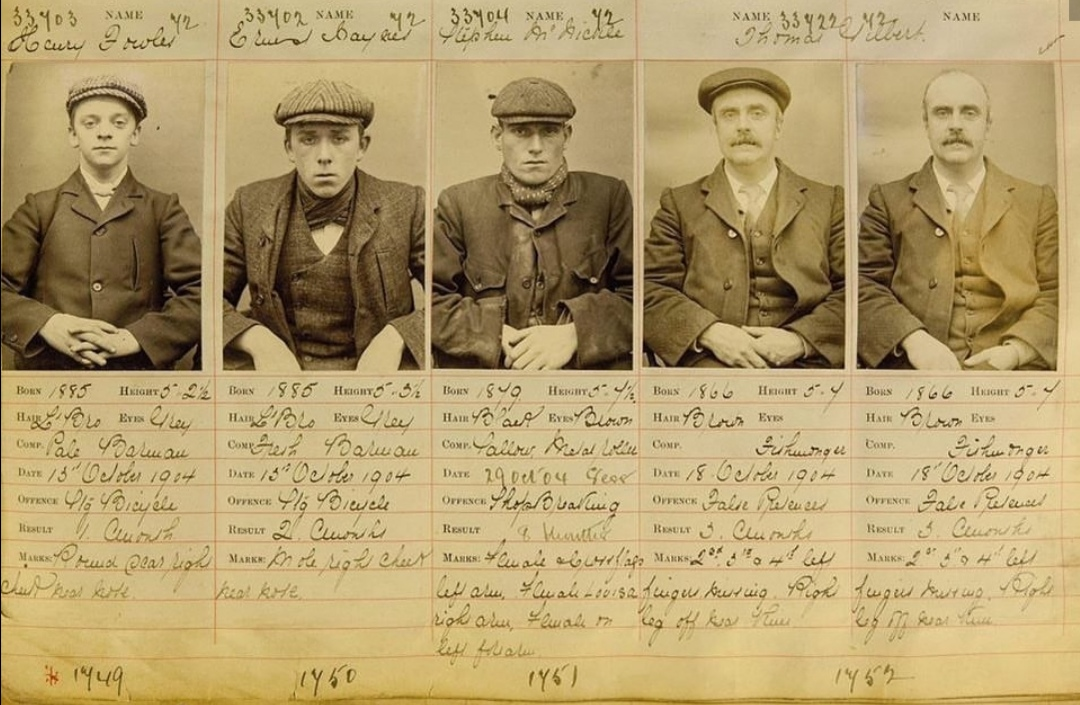 33703 NAME 72
Henry Fowles
33702 NAME 72
Ernest Haynes
33704 NAME 72
Stephen McNickle
NAME 33722 72
Thomas Wilbert
NAME
BORN 1885 HEIGHT 5-2½
HAIR Lt Bro EYES Grey
COMP. Pale Barman
DATE 15th October 1904
OFFENCE Stg Bicycle
RESULT 1. Cmonth
MARKS: Round scar right
cheek near nose
* 1749
BORN 1885 HEIGHT 5-5½
HAIR Lt Bro EYES Grey
COMP. Fresh Barman
DATE 15th October 1904
OFFENCE Stg Bicycle
RESULT 2. Cmonths
MARKS: Mole right cheek
near nose
1750
BORN 1879 HEIGHT 5-4½
HAIR Black EYES Brown
COMP. Sallow, Metal roller
DATE 29 Oct 04
OFFENCE Shop Breaking
RESULT 8 Months
MARKS: Female & Cross flags
left arm, Female Louisa
right arm, Female on
left forearm
1751
BORN 1866 HEIGHT 5-4
HAIR Brown EYES
COMP. Fishmonger
DATE 18th October 1904
OFFENCE False Pretences
RESULT 3. Cmonths
MARKS: 2nd, 3rd & 4th left
fingers missing. Right
leg off near knee
BORN 1866 HEIGHT 5-4
HAIR Brown EYES
COMP. Fishmonger
DATE 18th October 1904
OFFENCE False Pretences
RESULT 3. Cmonths
MARKS: 2nd 3rd & 4th left
fingers missing, Right
leg off near knee
1752